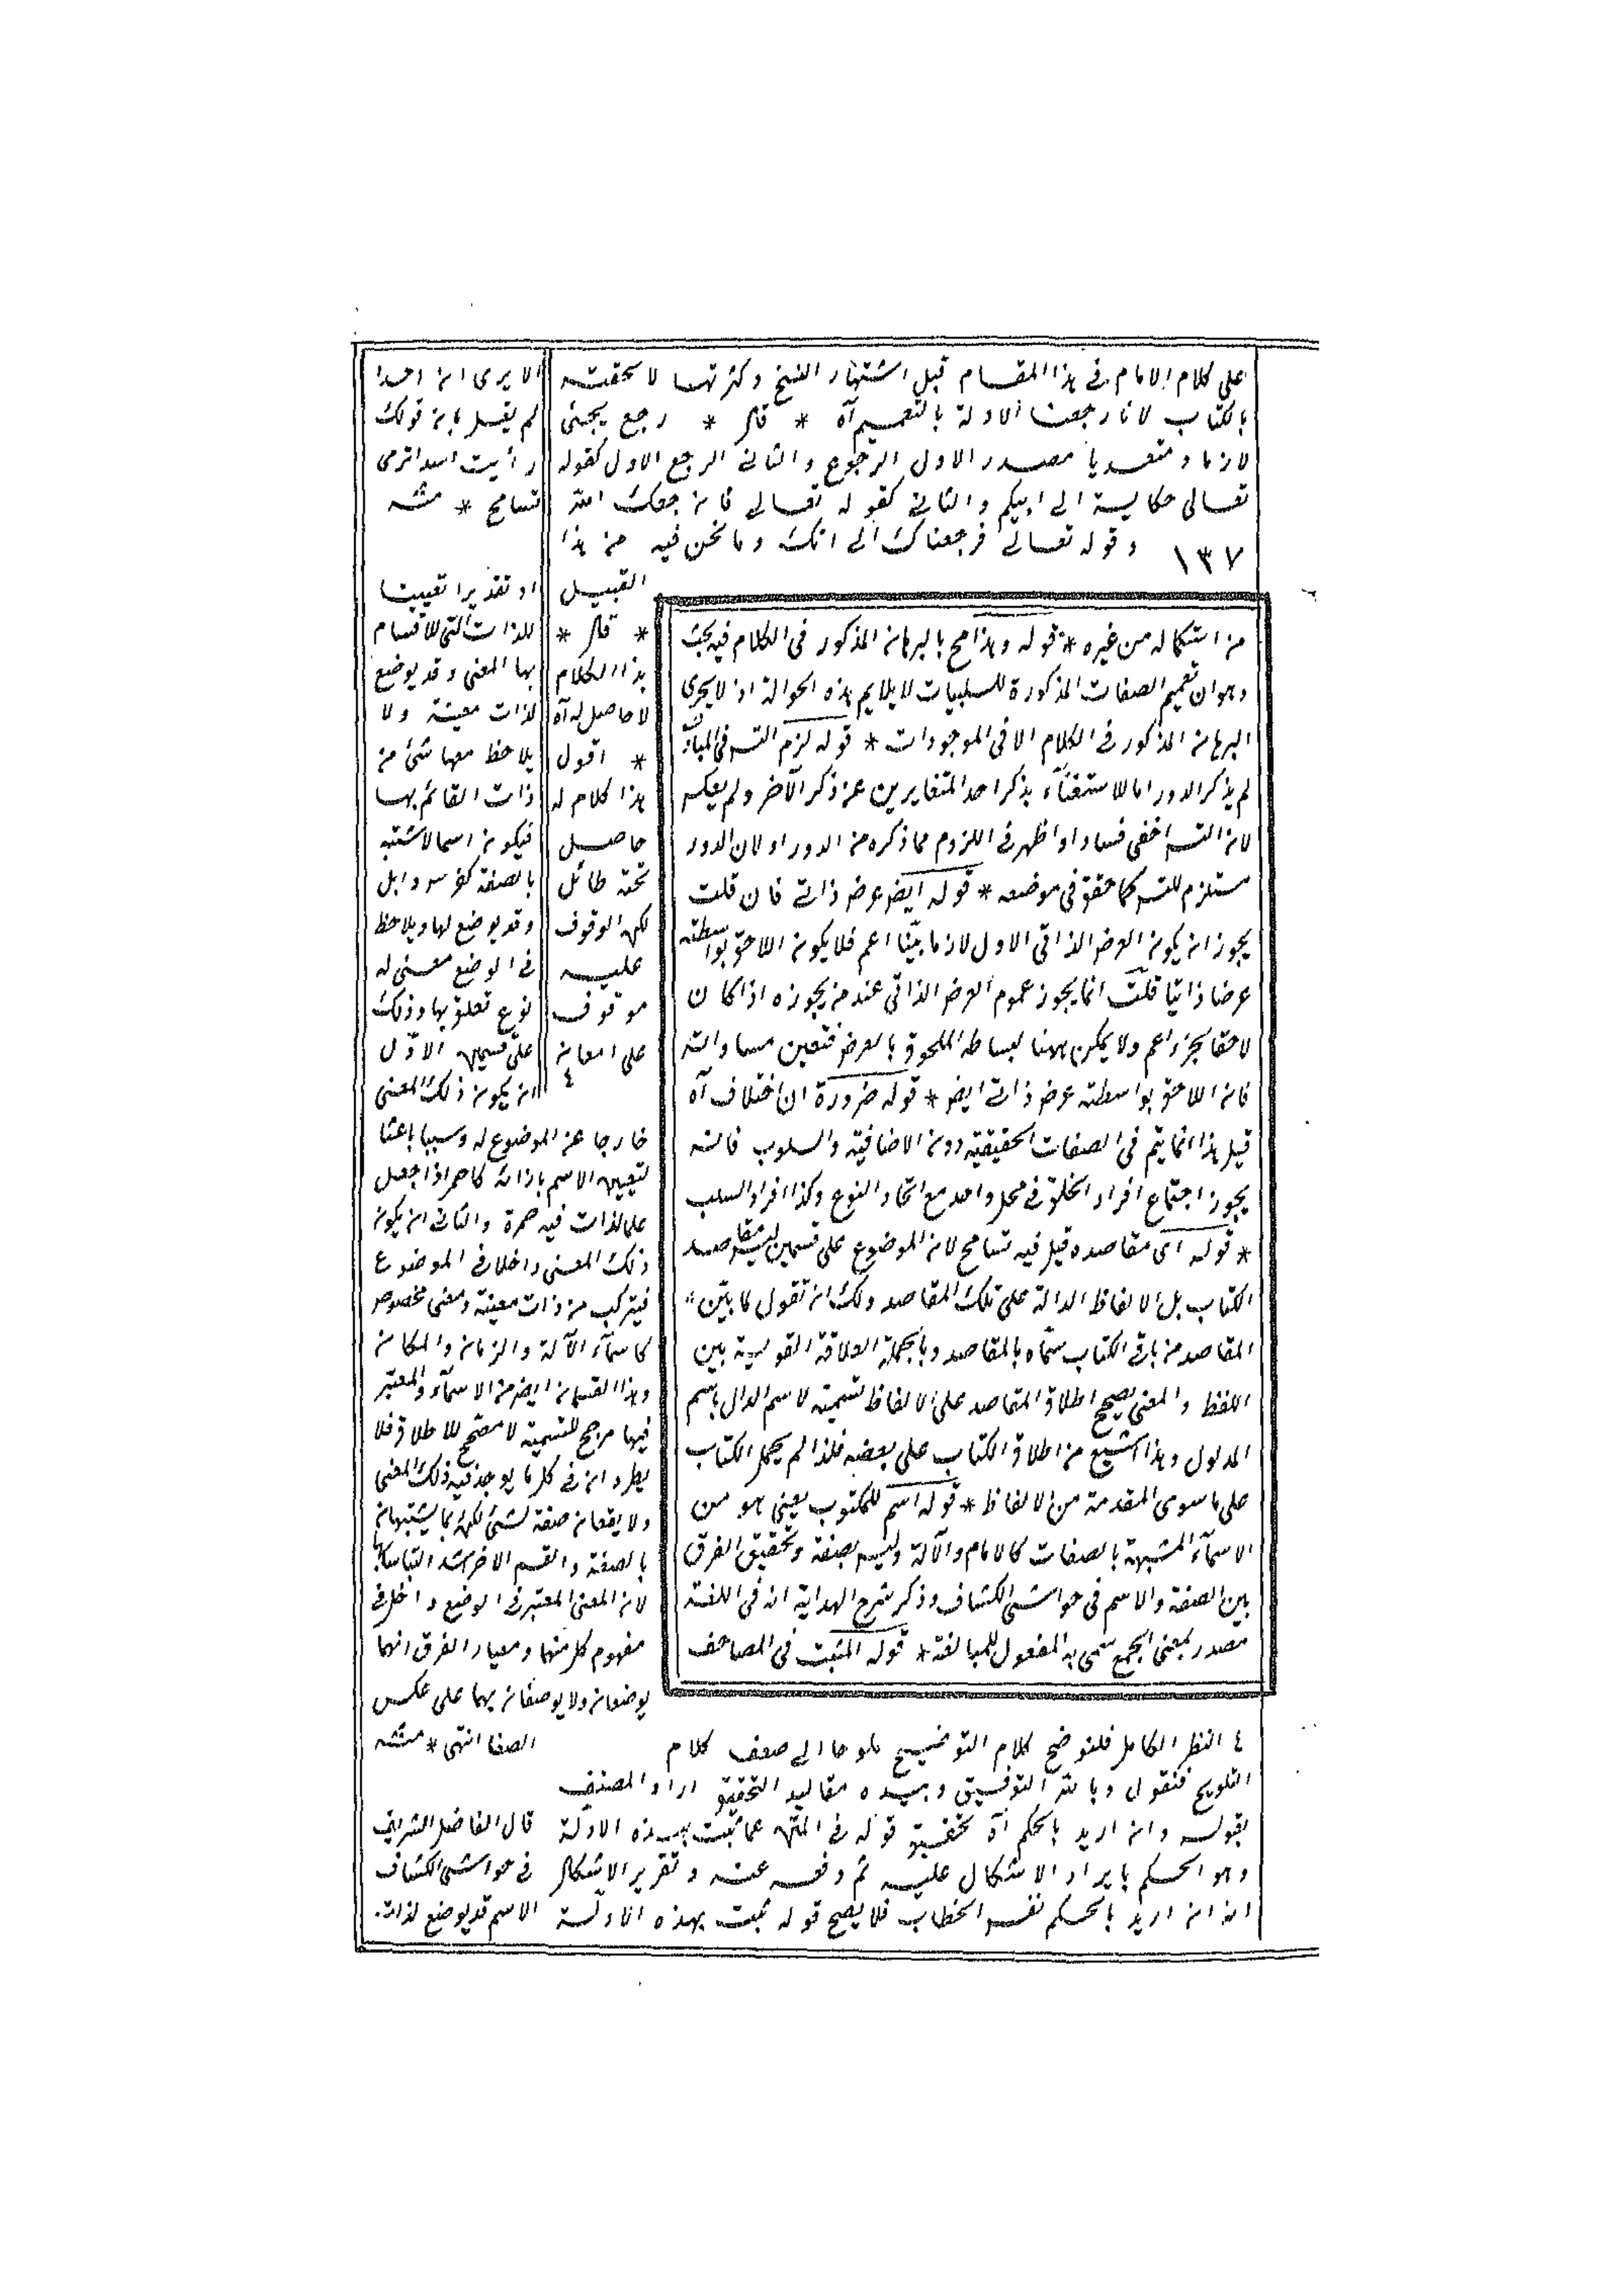 على كلام الامام فى هذا المقام قبل اشتهار النسخ وكثرتها لا لحقته
بالكتاب لانا رجعنا الادلة بالتعميم آه * قال * رجع يجئ
لازما ومتعديا مصدر الاول الرجوع والثانى الرجع الاول كقوله
تعالى حكاية الى ابيكم والثانى كقوله تعالى فان رجعك الله
١٣٧ وقوله تعالى فرجعناك الى امك وما نحن فيه من هذا
القبيل
* قال *
هذا الكلام
لا حاصل له آه
* اقول
هذا كلام له
حاصل
تحته طائل
لكن الوقوف
عليه
موقوف
على امعان
٤
من استكماله من غيره * قوله وهذا مع بالبرهان المذكور فى الكلام فيه بحث
وهو ان تعميم الصفات المذكورة للسلبيات لا يلايم هذه الحوالة اذ لا يجرى
البرهان المذكور فى الكلام الا فى الموجودات * قوله لزم التس فى المبادى
لم يذكر الدور اما للاستغناء بذكر احد المتغايرين عن ذكر الآخر ولم يعكس
لان التس اخفى فسادا واظهر فى اللزوم مما ذكره من الدور او لان الدور
مستلزم للتس كما حقق فى موضعه * قوله ايض عرض ذاتى فان قلت
يجوز ان يكون العرض الذاتى الاول لازما بينا اعم فلا يكون اللاحق بواسطته
عرضا ذاتيا قلت انما يجوز عموم العرض الذاتى عند من يجوزه اذا كان
لاحقا بجزء اعم ولا يمكن ههنا لبساطة الملحوق بالعرض فتعين مساواته
فان اللاحق بواسطته عرض ذاتى ايض * قوله ضرورة ان اختلاف آه
قيل هذا انما يتم فى الصفات الحقيقية دون الاضافية والسلوب فانه
يجوز اجتماع افراد الخلق فى محل واحد مع اتحاد النوع وكذا افراد السلب
* قوله اى مقاصده قيل فيه تسامح لان الموضوع على قسمين ليس مقاصد
الكتاب بل الالفاظ الدالة على تلك المقاصد ولك ان تقول لما بين
المقاصد من باقى الكتاب سماه بالمقاصد وبالجملة العلاقة القوية بين
اللفظ والمعنى يصحح اطلاق المقاصد على الالفاظ تسمية لاسم الدال باسم
المدلول وهذا اشيع من اطلاق الكتاب على بعضه فلذا لم يحمل الكتاب
على ما سوى المقدمة من الالفاظ * قوله اسم للمكتوب يعنى هو من
الاسماء المشبهة بالصفات كالامام والآلة وليس بصفة وتحقيق الفرق
بين الصفة والاسم فى حواشى الكشاف وذكر شرح الهداية انه فى اللغة
مصدر بمعنى الجمع سمى به المفعول للمبالغة * قوله المثبت فى المصاحف
٤ النظر الكامل فلنوضح كلام التوضيح ملوحا الى ضعف كلام
التلويح فنقول وبالله التوفيق وبيده مقاليد التحقيق اراد المصنف
بقوله وان اريد بالحكم آه تحقيق قوله فى المتن عما ثبت بهذه الادلة
وهو الحكم بايراد الاشكال عليه ثم دفعه عنه وتقرير الاشكال
انه ان اريد بالحكم نفس الخطاب فلا يصح قوله ثبت بهذه الادلة
الا يرى ان احدا
لم يقل بان قولك
رأيت اسدا ترمى
تسامح * منه
قال الفاضل الشريف
فى حواشى الكشاف
الاسم قد يوضع لذات
او تقديرا تعيينا
للذات التى للاقسام
بها المعنى وقد يوضع
لذات معينة ولا
يلاحظ معها شئ من
ذات القائم بها
فيكون اسما لا شتبه
بالصفة كفرس وابل
وقد يوضع لها ويلاحظ
فى الوضع معنى له
نوع تعلق بها وذلك
على قسمين الاول
ان يكون ذلك المعنى
خارجا عن الموضوع له وسببا باعثا
لتعيين الاسم بازائه كاحمر اذا جعل
علما لذات فيه حمرة والثانى ان يكون
ذلك المعنى داخلا فى الموضوع
فيتركب من ذات معينة ومعنى مخصوص
كاسماء الآلة والزمان والمكان
وهذا القسمان ايض من الاسماء والمعتبر
فيها مرجح للتسمية لا مصحح للاطلاق فلا
يطردان فى كل ما يوجد فيه ذلك المعنى
ولا يقعان صفة لشئ لكن ربما يشتبهان
بالصفة والقسم الاخر اشد التباسا بها
لان المعنى المعتبر فى الوضع داخل فى
مفهوم كل منهما ومعيار الفرق انهما
يوضعان ولا يوصفان بهما على عكس
الصفا انتهى * منه